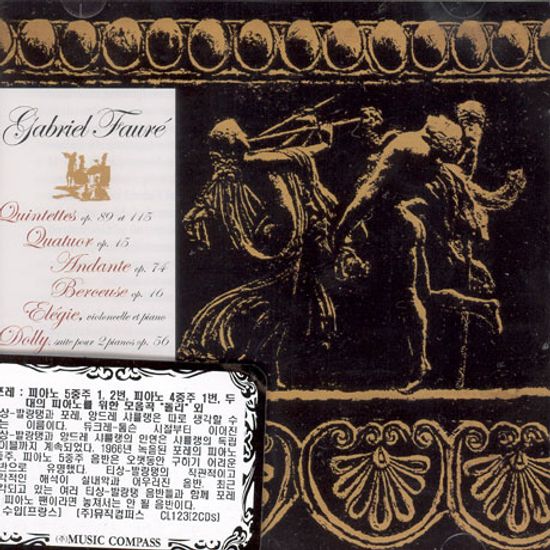 Gabriel Fauré
Quintettes op. 89 et 115
Quatuor op. 15
Andante op. 74
Berceuse op. 16
Elégie, violoncelle et piano
Dolly, suite pour 2 pianos op. 56
포레 : 피아노 5중주 1, 2번, 피아노 4중주 1번, 두
대의 피아노를 위한 모음곡 "돌리" 외
상-발랑탱과 포레, 앙드레 샤를랭은 따로 생각할 수
는 이름이다. 듀크레-톰슨 시절부터 이어진
상-발랑탱과 앙드레 샤를랭의 인연은 샤를랭의 독립
이블까지 계속되었다. 1966년 녹음된 포레의 피아노
중주, 피아노 5중주 음반은 오랫동안 구하기 어려운
반으로 유명했다. 티상-발랑탱의 직관적이고
학적인 해석이 실내악과 어우러진 음반. 최근
각되고 있는 여러 티상-발랑탱 음반들과 함께 포레
피아노 팬이라면 놓쳐서는 안 될 음반이다.
수입(프랑스) (주)뮤직컴퍼스 CL123(2CDs)
(주)MUSIC COMPASS